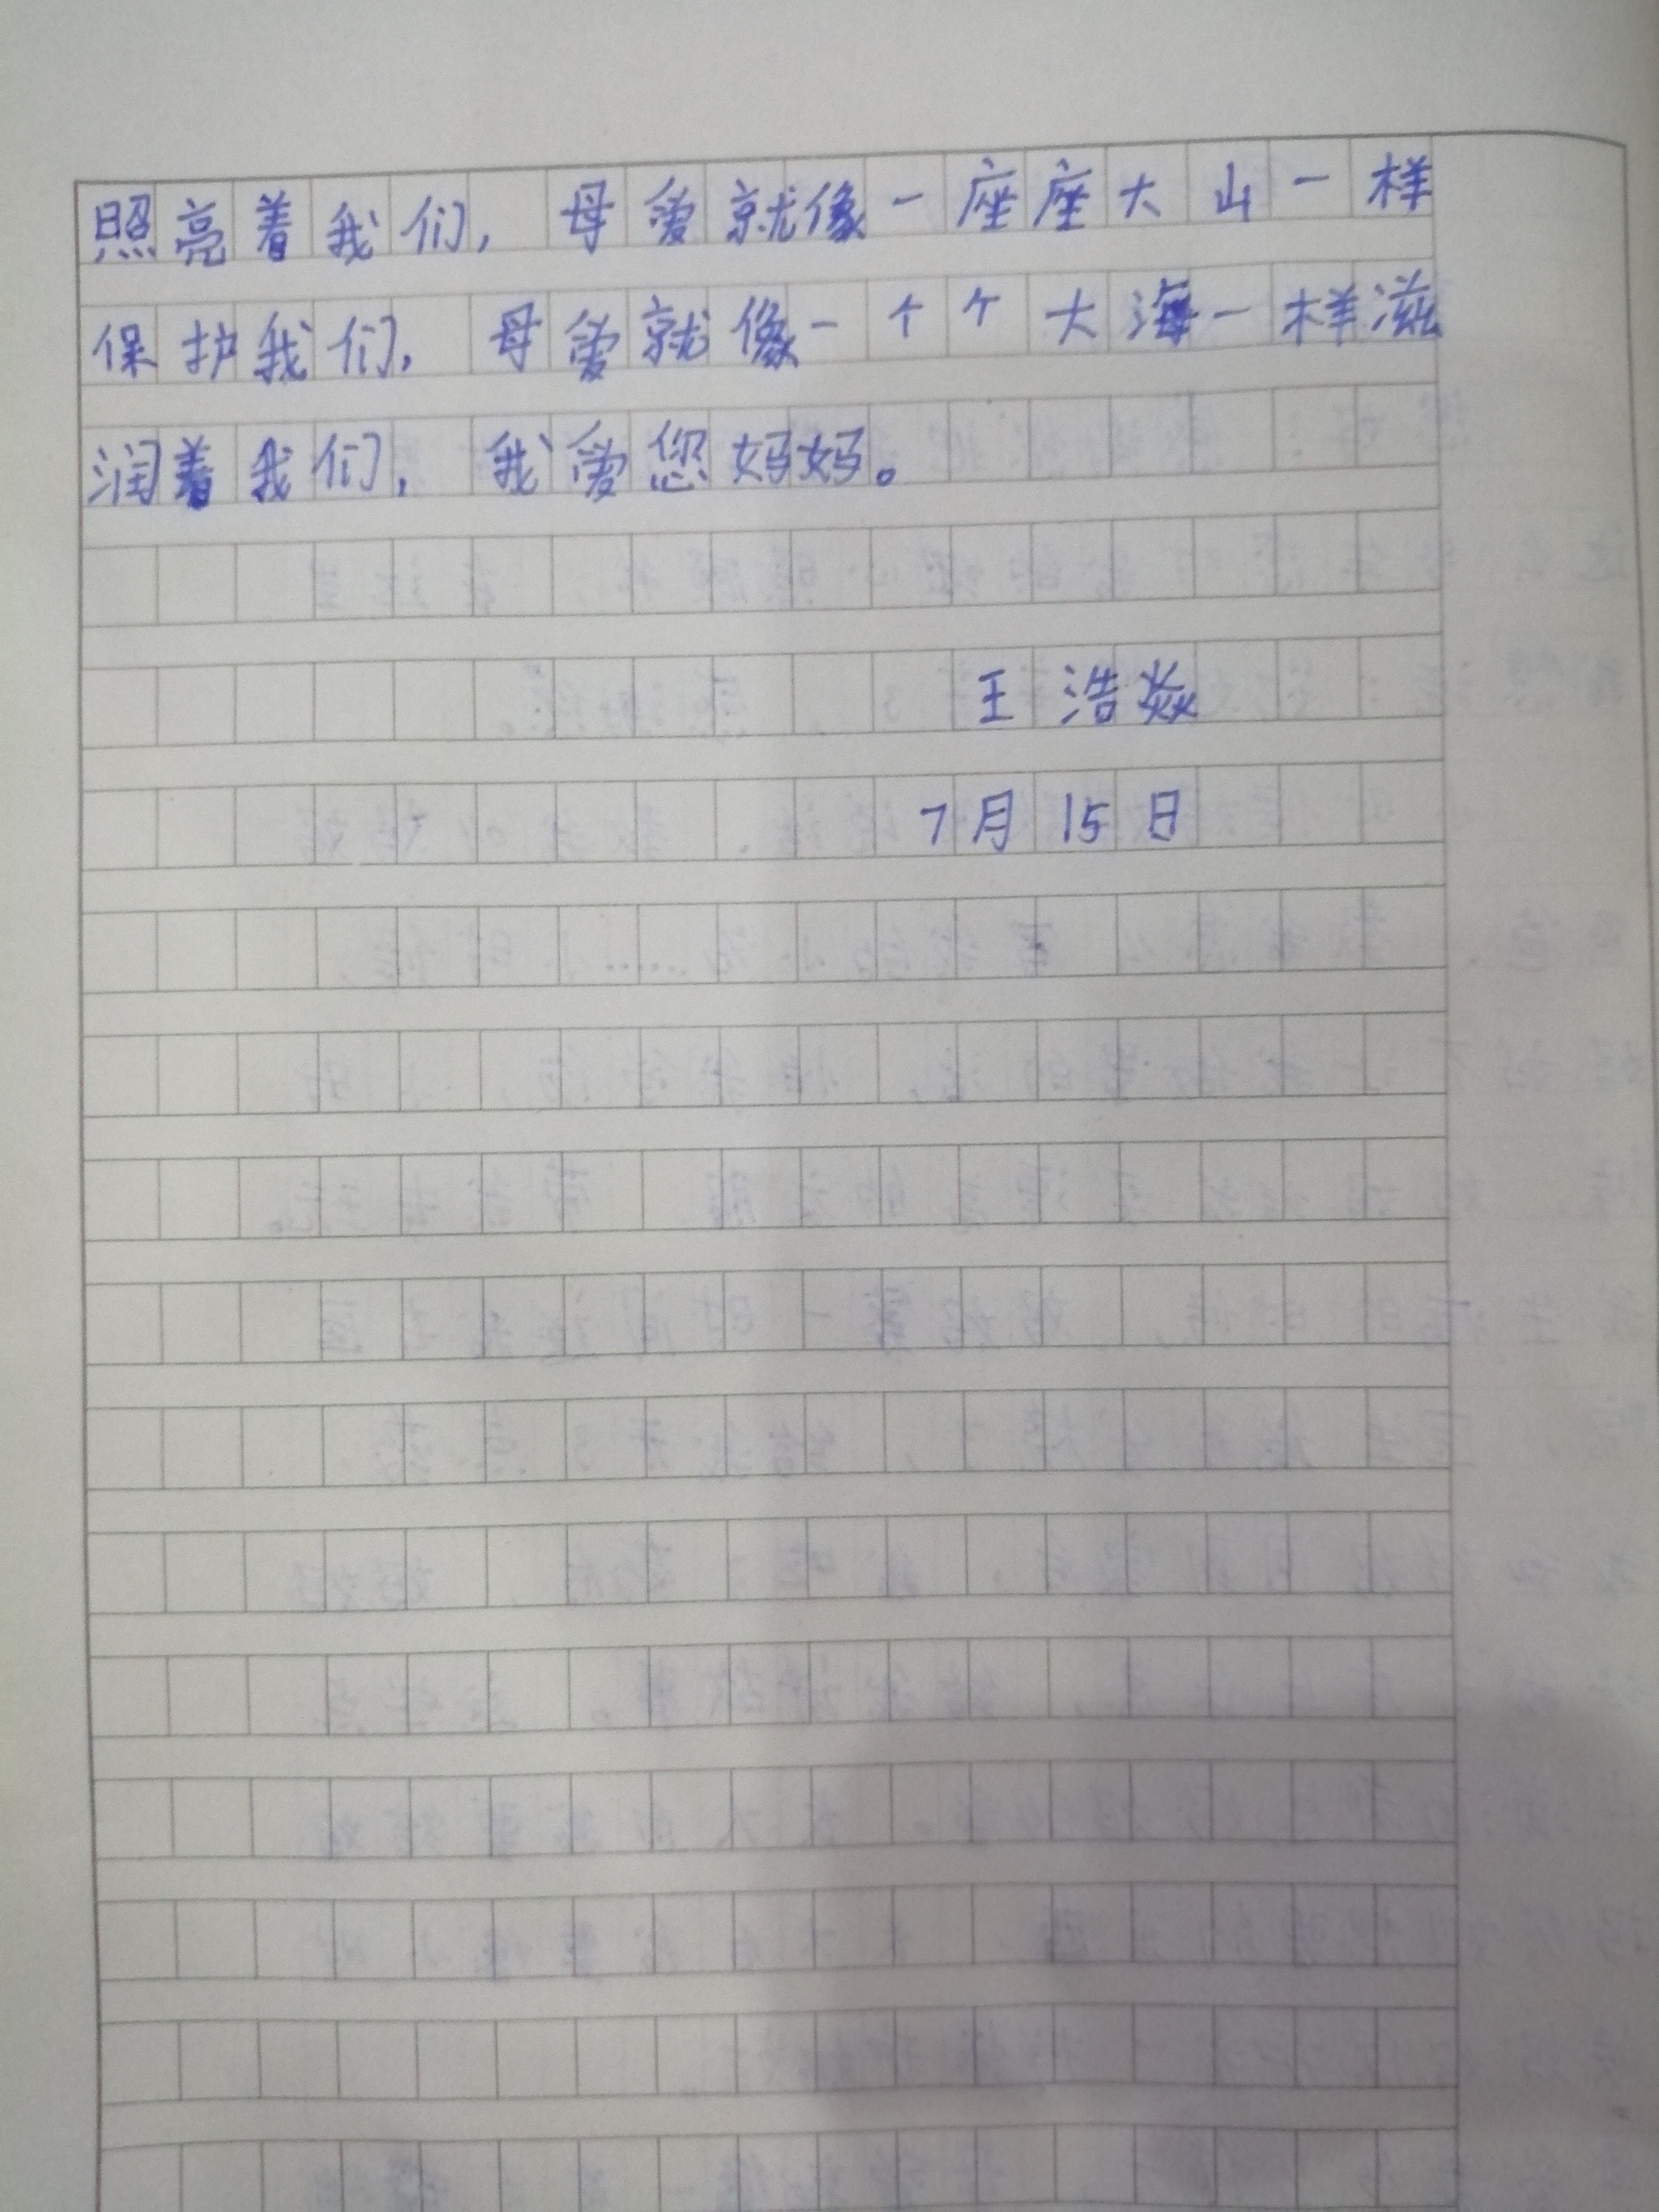 照亮着我们，母爱就像一座座大山一样
保护我们，母爱就像一个个大海一样滋
润着我们，我爱您妈妈。
王浩焱
7月15日